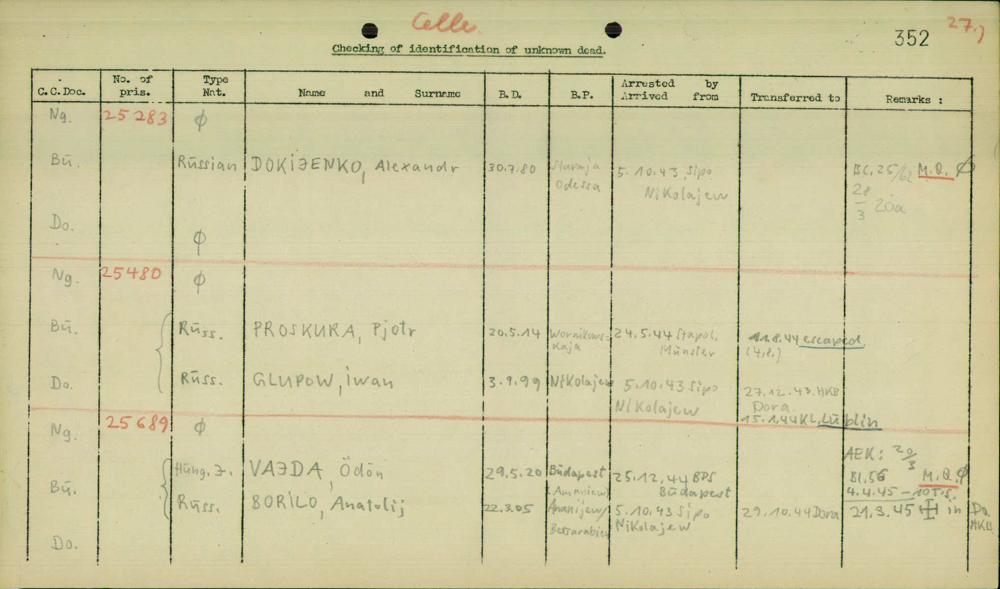 Celle
27.)
352
Checking of identification of unknown dead.
C.C.Doc. No. of pris. Type Nat. Name and Surname B.D. B.P. Arrested by Arrived from Transferred to Remarks :
Ng. 25283 ϕ
Bū. Rūssian DOKIJENKO, Alexandr 30.7.80 Odessa 5.10.43 Sipo Nikolajew M.Q. ϕ
28/3 20a
Do. ϕ
Ng. 25480 ϕ
Bū. Rūss. PROSKURA, Pjotr 20.5.14 24.5.44 Stapol. Münster 11.8.44 escaped
(4.8.)
Do. Rūss. GLUPOW, iwan 3.9.99 Nikolajew 5.10.43 Sipo Nikolajew 27.12.43 HKB Dora
15.1.44 KL. Lūblin
Ng. 25689 ϕ
AEK: 20/3
Hūng. J. VAJDA, Ödön 29.5.20 Būdapest 25.12.44 BDS Būdapest Bl.56 M.Q. ϕ
Bū. 4.4.45
Rūss. BORILO, Anatolij 22.3.05 Ananijew/ Bessarabien 5.10.43 Sipo Nikolajew 29.10.44 Dora 21.3.45 in Do. HKB
Do.